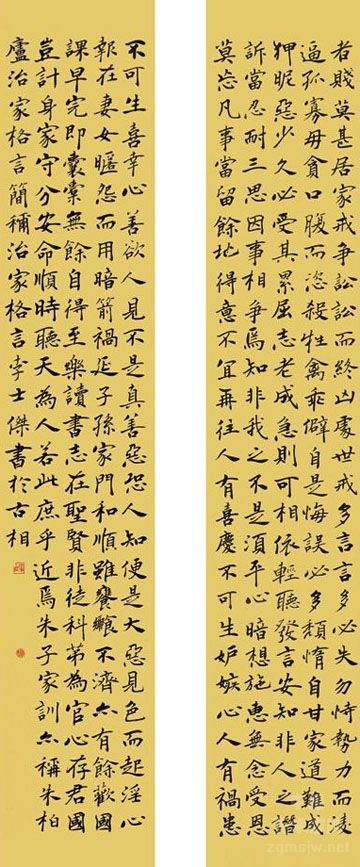 者賊莫甚居家戒争訟訟而終凶處世戒多言言多必失勿恃勢力而凌
逼孤寡毋貪口腹而恣殺牲禽乖僻自是悔誤必多頹惰自甘家道難成
狎昵惡少久必受其累屈志老成急則可相依輕聽發言安知非人之譖
訴當忍耐三思因事相爭焉知非我之不是須平心暗想施惠無念受恩
莫忘凡事當留餘地得意不宜再往人有喜慶不可生妒嫉心人有禍患
不可生喜幸心善欲人見不是真善惡恐人知便是大惡見色而起淫心
報在妻女暱怨而用暗箭禍延子孫家門和順雖饔飧不濟亦有餘歡國
課早完即囊橐無餘自得至樂讀書志在聖賢非徒科第為官心存君國
豈計身家守分安命順時聽天為人若此庶乎近焉朱子家訓亦稱朱柏
廬治家格言簡稱治家格言李士傑書於古相
zgmsjw.net